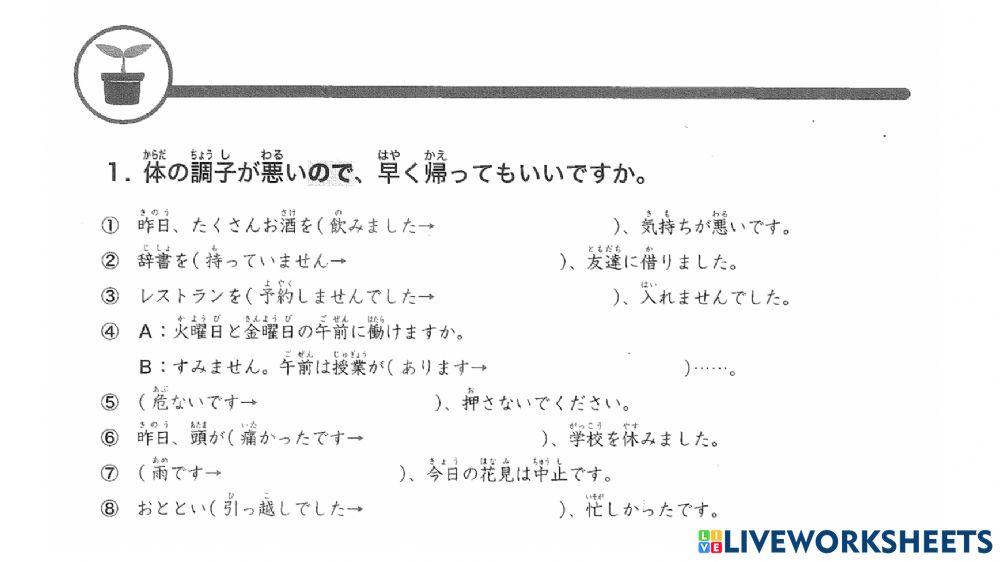 1. 体の調子が悪いので、早く帰ってもいいですか。
① 昨日、たくさんお酒を( 飲みました→ )、気持ちが悪いです。
② 辞書を( 持っていません→ )、友達に借りました。
③ レストランを( 予約しませんでした→ )、入れませんでした。
④ A：火曜日と金曜日の午前に働けますか。
B：すみません。午前は授業が( あります→ )……。
⑤ ( 危ないです→ )、押さないでください。
⑥ 昨日、頭が( 痛かったです→ )、学校を休みました。
⑦ ( 雨です→ )、今日の花見は中止です。
⑧ おととい( 引っ越しでした→ )、忙しかったです。
LIVEWORKSHEETS